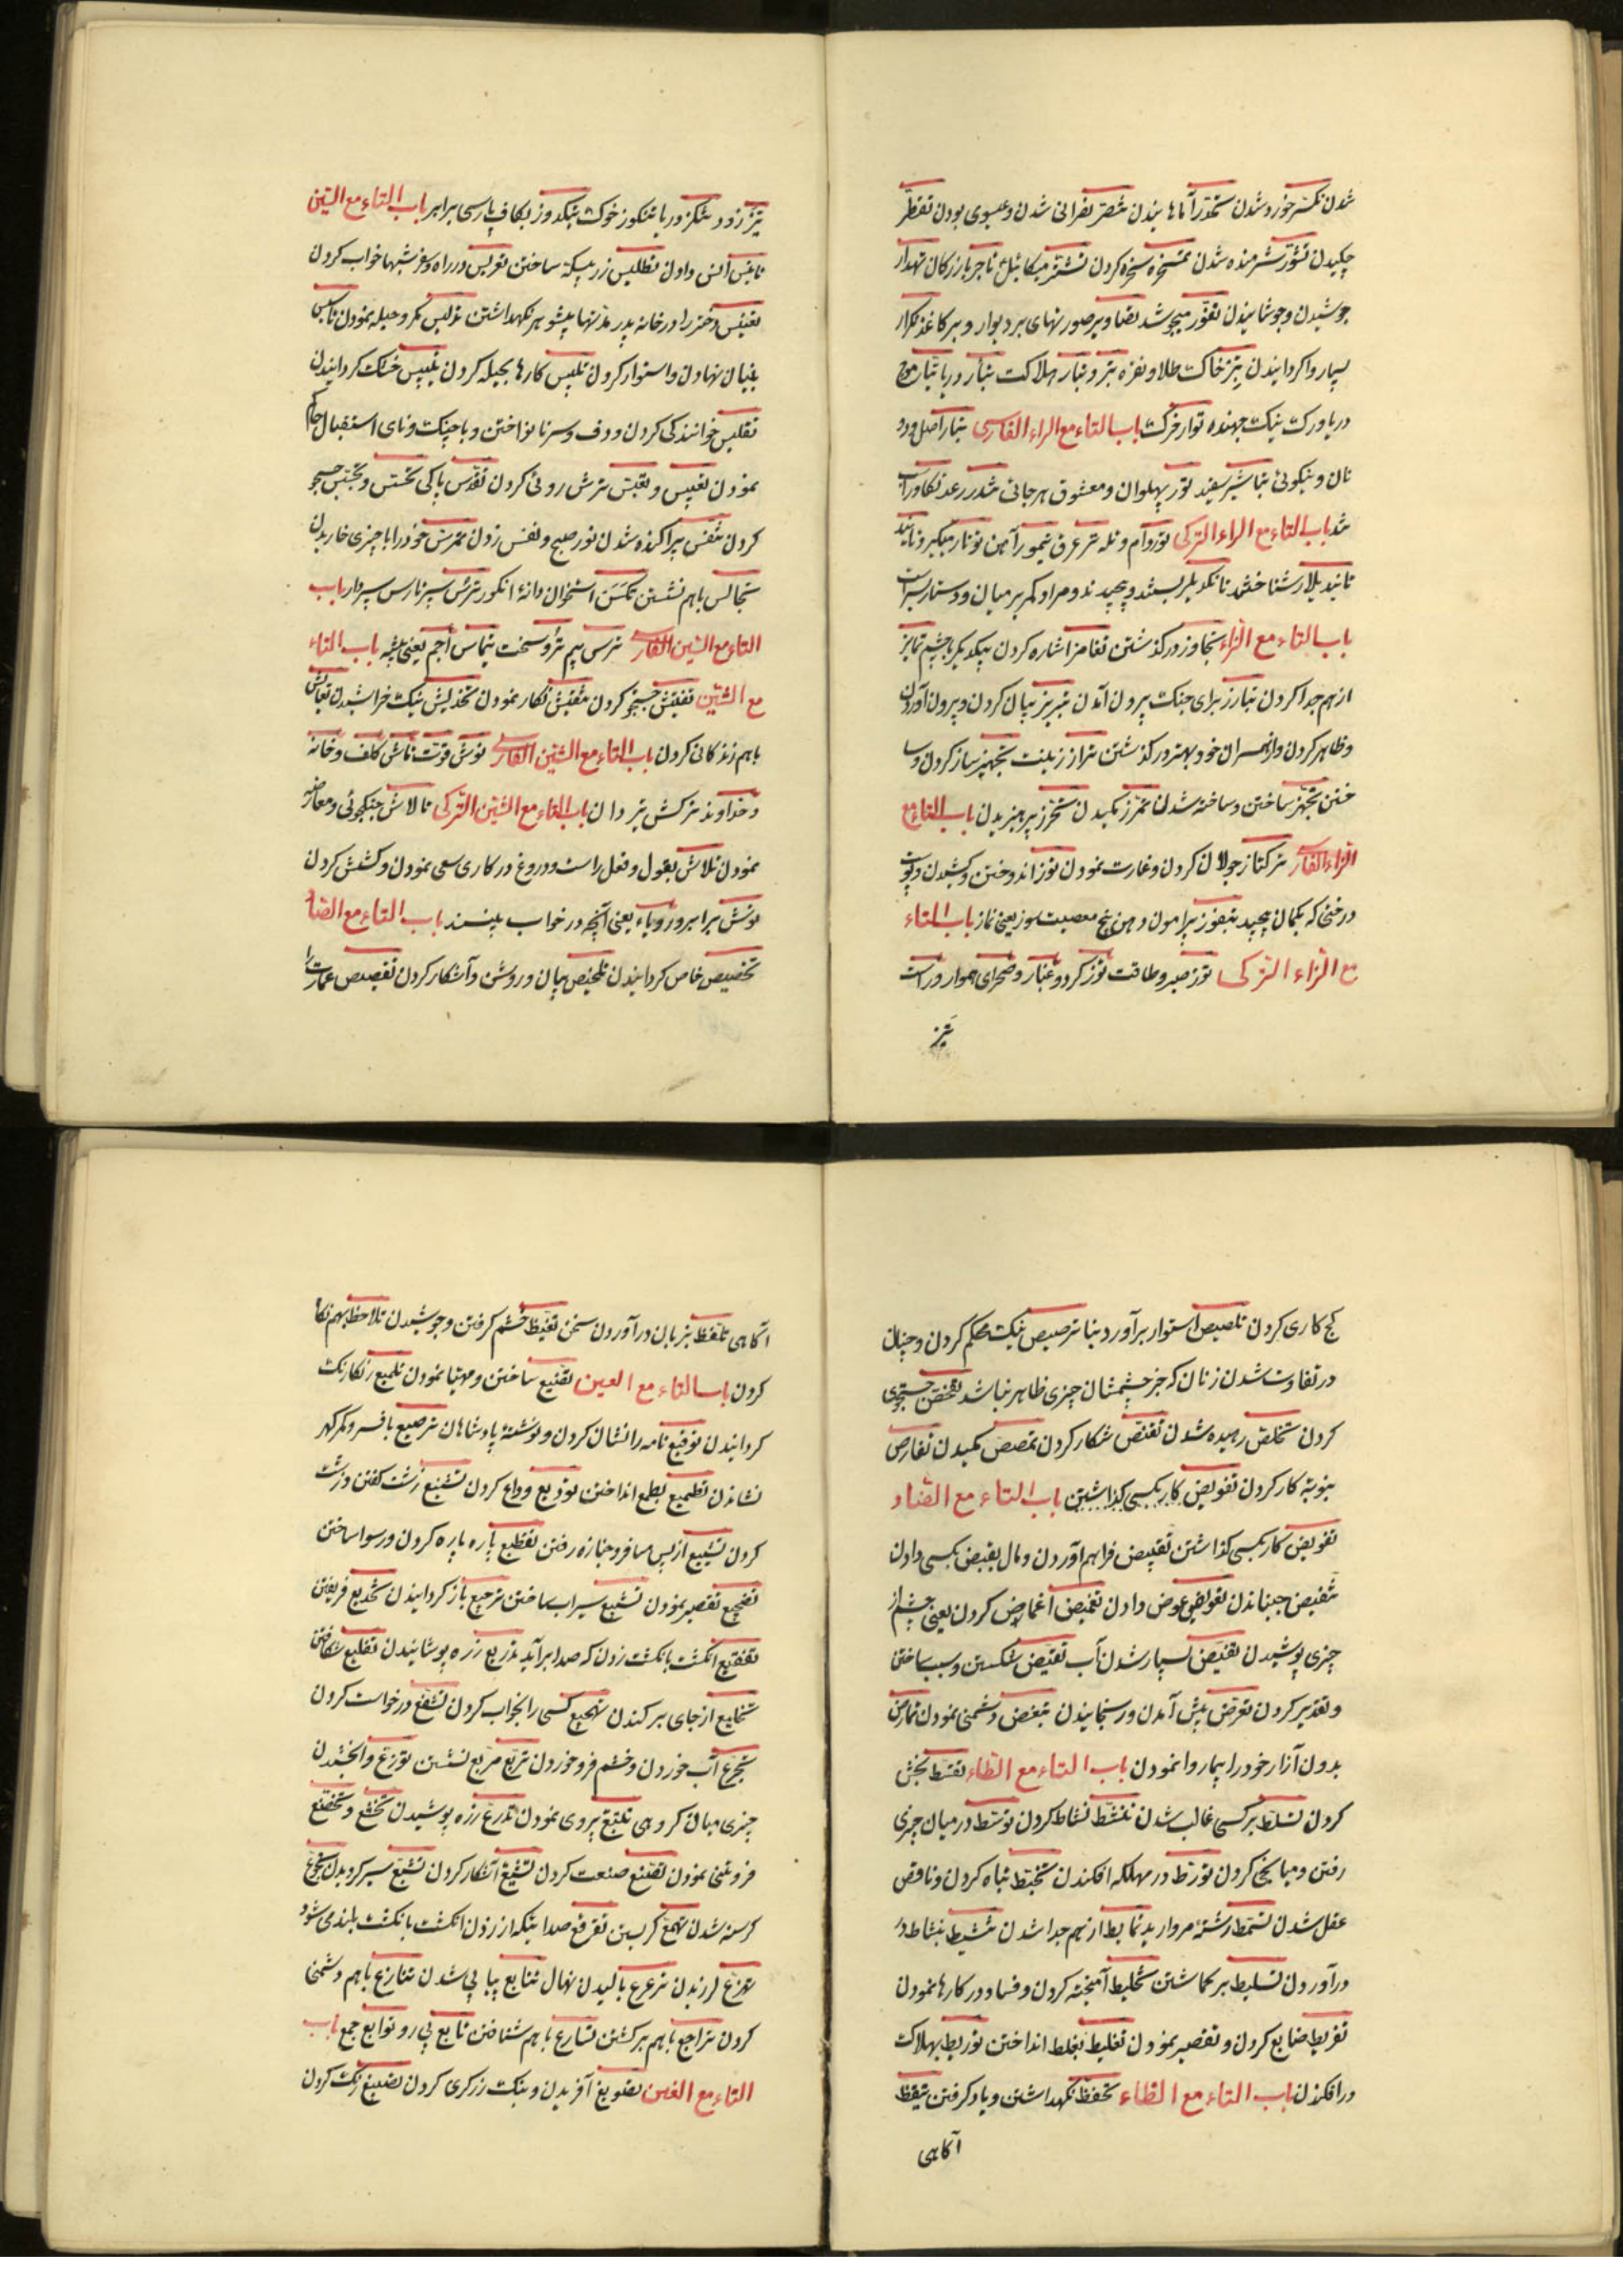 شدن تکسر خورد شدن تحدر آماهانیدن تنصر نفرانی شدن و عیسوی بودن تقطر
چکیدن تشور شرمنده شدن تمسخر سخره کردن تشتر میکائیل تاجر بازرکان تهدار
جوشیدن و جوشانیدن تفور میجوشد تصاویر صورتهای بر دیوار و بر کاغذ تکرار
بسیار واکردانیدن تبر خاک طلا و نقره تبر و تبار هلاکت تیار دریا تیار موج
دریا و رک نیک جهنده توار فرک باب التاء مع الراء الفارسی تبار اصل و دود
نان و نیکوئی تباشیر سفید تور پهلوان و معشوق هرجائی تندر رعد تکاور اسب
تند باب التاء مع الراء الترکی
باب التاء مع الزاء تجاوز درکذشتن تغامز اشاره کردن بیکدیکر بچشم تمایز
از هم جدا کردن تبارز برای جنک بیرون آمدن تبریز بیان کردن و بیرون آوردن
و ظاهر کردن و از همسران خود بهتر و درکذشتن تراز زینت تجهیز ساز کردن و سا
ختن تجهز ساختن و ساخته شدن تمزز مکیدن تحرز پرهیزیدن باب التاء مع
الزاء الفارسی ترکتاز جولان کردن و غارت نمودن توز اندوختن و کشیدن و پوست
درختی که بکمان پیچید بتفوز پیرامون دهن تج معصیت سوز یعنی نماز باب التاء
مع الزاء الترکی توز صبر و طاقت توز کرد و غبار و صحرای هموار و راست
تیز
تیز زود باب التاء مع السین
تأنیس انس دادن تطلیس زر بیسکه ساختن تعریس در راه و سفر شبها خواب کردن
تعنیس دختر را در خانه پدر مدتها بیشوهر نکهداشتن تدلیس مکر و حیله نمودن تأسیس
بنیان نهادن و استوار کردن تلبیس کارها بحیله کردن تیبیس خشک کردانیدن
تقلیس خوانندکی کردن و دف و سرنا نواختن و با چنک و نای استقبال حاکم
نمودن تعبیس و تعبس ترش روئی کردن تقدس پاکی تحسس و تجسس جستجو
کردن تنفس پراکنده شدن نور صبح و نفس زدن تمرس خود را با چیزی خاریدن
تجالس باهم نشستن تکسس استخوان دانهٔ انکور ترس سپر تارس سپردار باب
التاء مع السین الفارسی ترس بیم باب التاء
مع الشین تفتیش جستجو کردن تنقیش نکار نمودن تخدیش نیک خراشیدن تعایش
باهم زندکانی کردن باب التاء مع الشین الفارسی توش قوت تاش کلف و خانه
و خداوند ترکش تیردان باب التاء مع الشین الترکی تالاش جنکجوئی و معارضه
نمودن تلاش بقول و فعل راست و دروغ در کاری سعی نمودن و کشش کردن
توش برابر و رویاء یعنی آنچه در خواب بینند باب التاء مع الصاد
تخصیص خاص کردانیدن تلخیص بیان و روشن و آشکار کردن تقصیص عمارت را
کچ کاری کردن تلصیص استوار برآوردن بنا ترصیص نیک محکم کردن و چنان
در نقاب شدن زنان که جز چشمشان چیزی ظاهر نباشد تفحص جستجوی
کردن تخلص رهیده شدن تقنص شکار کردن تمصص مکیدن تفارص
بنوبة کار کردن تفویض کار بکسی کذاشتن باب التاء مع الضاد
تفویض کار بکسی کذاشتن تقبیض فراهم آوردن و مال بقبض بکسی دادن
تنفیض جنباندن تعویض عوض دادن تغمیض اغماض کردن یعنی چشم از
چیزی پوشیدن تفیض بسیار شدن آب تقیض شکستن و سبب ساختن
و تقدیر کردن تعرض پیش آمدن و رنجانیدن تبغض دشمنی نمودن تمارض
بدون آزار خود را بیمار وا نمودن باب التاء مع الطاء تقسط بخش
کردن تسلط بر کسی غالب شدن تنشط نشاط کردن توسط در میان چیزی
رفتن و میانجی کردن تورط در مهلکه افکندن تخبط تباه کردن و ناقص
عقل شدن تسمط رشتهٔ مروارید تمابط از هم جدا شدن تنشیط بنشاط در
درآوردن تسلیط برکماشتن تخلیط آمیخته کردن و فساد در کارها نمودن
تفریط ضایع کردن و تقصیر نمودن تغلیط بغلط انداختن توریط بهلاکت
درافکندن باب التاء مع الظاء تحفظ نکهداشتن و یاد کرفتن تیقظ
آکاهی
آکاهی تلفظ بزبان درآوردن سخن تغیظ خشم کرفتن و جوشیدن تلاحظ بهم نکا
کردن باب التاء مع العین تصنیع ساختن و مهیا نمودن تلمیع رنکارنک
کردانیدن توقیع نامه را نشان کردن و نوشتهٔ پادشاهان ترصیع تاج و کمر کهر
نشاندن تطمیع بطمع انداختن تودیع وداع کردن تشنیع زشت کفتن و زشت
کردن تشییع از پس مسافر و جنازه رفتن تقطیع پاره پاره کردن و رسوا ساختن
تضجیع تقصیر نمودن تشبیع سیراب ساختن ترجیع بازکردانیدن تخدیع فریفتن
تفقیع انکشت بانکشت زدن که صدا برآید تدریع زره پوشانیدن تفلیع شکافتن
تخلیع از جای برکندن تهجیع کسی را بخواب کردن تشفع درخواست کردن
تجرع آب خوردن و خشم فرو خوردن تربع مربع نشستن توزع و ابخشیدن
چیزی میان کروهی تتبع پیروی نمودن تدرع زره پوشیدن تخشع و تخضع
فروتنی نمودن تصنع صنعت کردن تشیع آشکار کردن تشبع سیر کردیدن تجوع
کرسنه شدن تهمع کریستن تفرقع صدائیکه از زدن انکشت بانکشت بلند می شود
تهزع لرزیدن ترعرع بالیدن نهال تتابع پیاپی شدن تنازع باهم دشمنی
کردن تراجع باهم برکشتن تسارع باهم شتافتن تابع پی رو توابع جمع باب
التاء مع الغین تصویغ آفریدن و نیک زرکری کردن تصبیغ رنک کردن